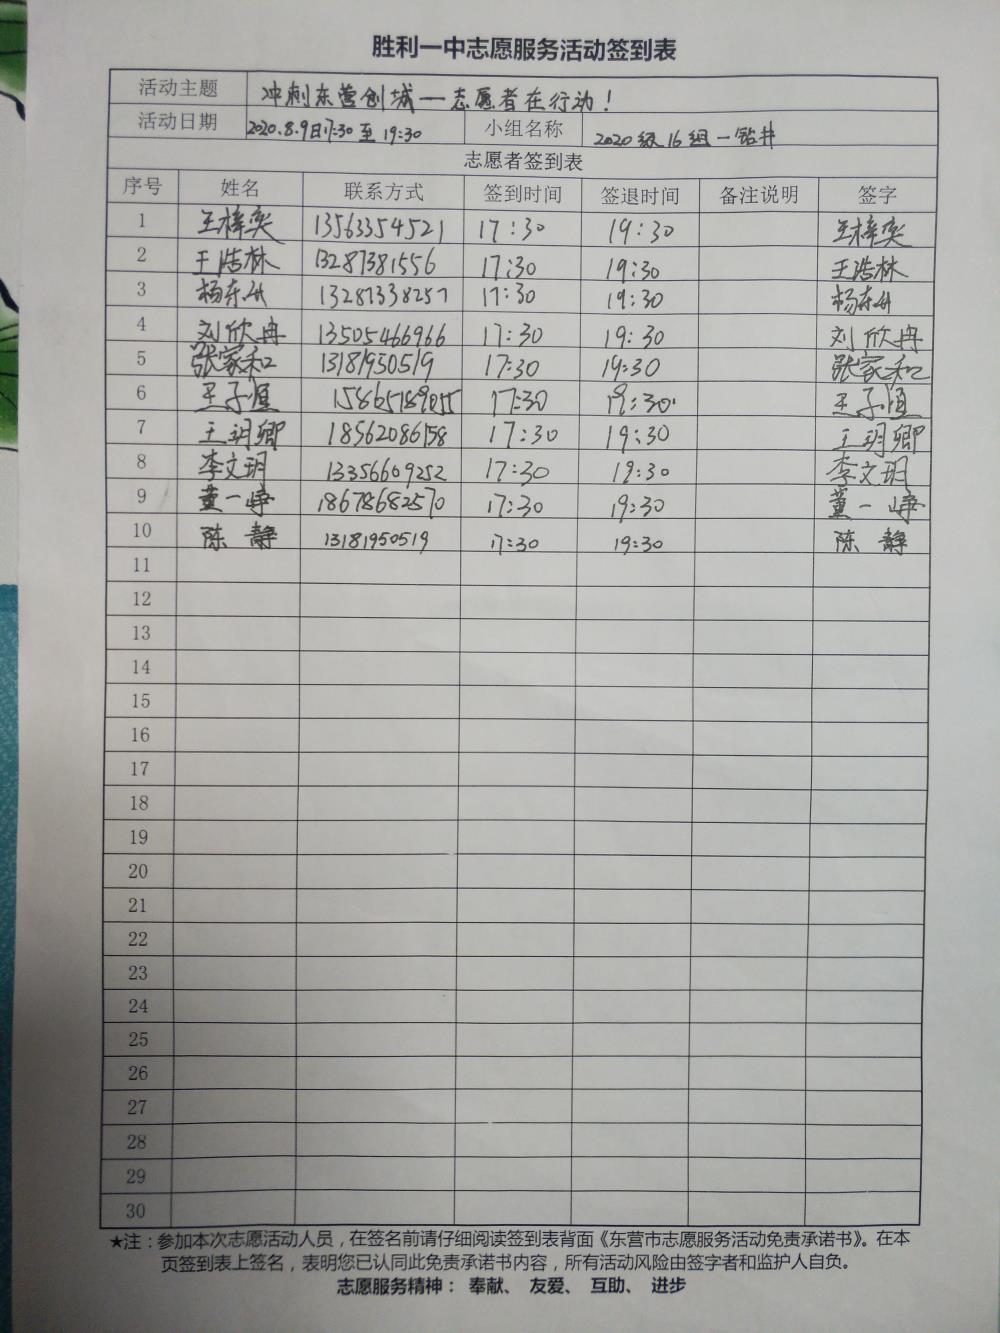 胜利一中志愿服务活动签到表
活动主题 冲刺东营创城—志愿者在行动！
活动日期 2020.8.9日17:30 至 19:30 小组名称 2020级16组一钻井
志愿者签到表
序号 姓名 联系方式 签到时间 签退时间 备注说明 签字
1 王梓奕 13563354521 17:30 19:30 王梓奕
2 王浩林 13287381556 17:30 19:30 王浩林
3 杨东升 13287338257 17:30 19:30 杨东升
4 刘欣冉 13505466966 17:30 19:30 刘欣冉
5 张家和 13181950519 17:30 19:30 张家和
6 王子恒 15865189055 17:30 19:30 王子恒
7 王玥卿 18562086158 17:30 19:30 王玥卿
8 李文玥 13356609252 17:30 19:30 李文玥
9 董一峥 18678682570 17:30 19:30 董一峥
10 陈静 13181950519 17:30 19:30 陈静
11
12
13
14
15
16
17
18
19
20
21
22
23
24
25
26
27
28
29
30
★注：参加本次志愿活动人员，在签名前请仔细阅读签到表背面《东营市志愿服务活动免责承诺书》。在本
页签到表上签名，表明您已认同此免责承诺书内容，所有活动风险由签字者和监护人自负。
志愿服务精神： 奉献、 友爱、 互助、 进步